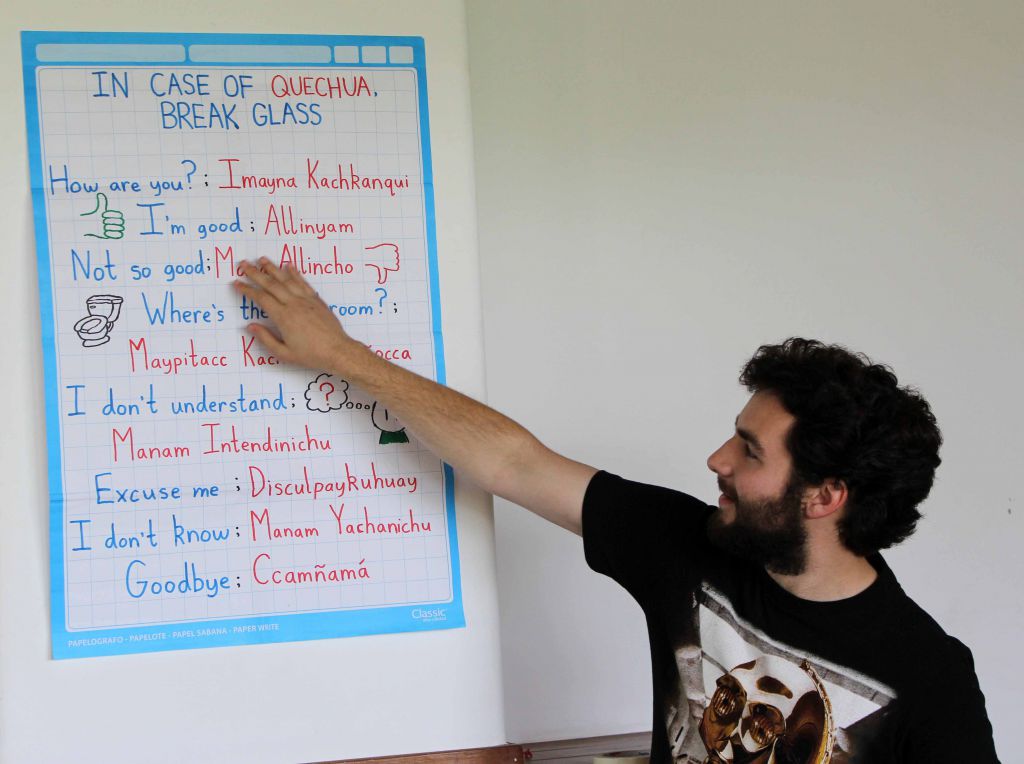 IN CASE OF QUECHUA,
BREAK GLASS
How are you? ; Imayna Kachkanqui
I'm good ; Allinyam
Not so good; Allincho
Where's room? ;
Maypitacc
I don't understand ; ?
Manam Intendinichu
Excuse me ; Disculpaykuhuay
I don't know ; Manam Yachanichu
Goodbye ; Ccamñamá
Classic
PAPELOGRAFO - PAPELOTE - PAPEL SABANA - PAPER WRITE